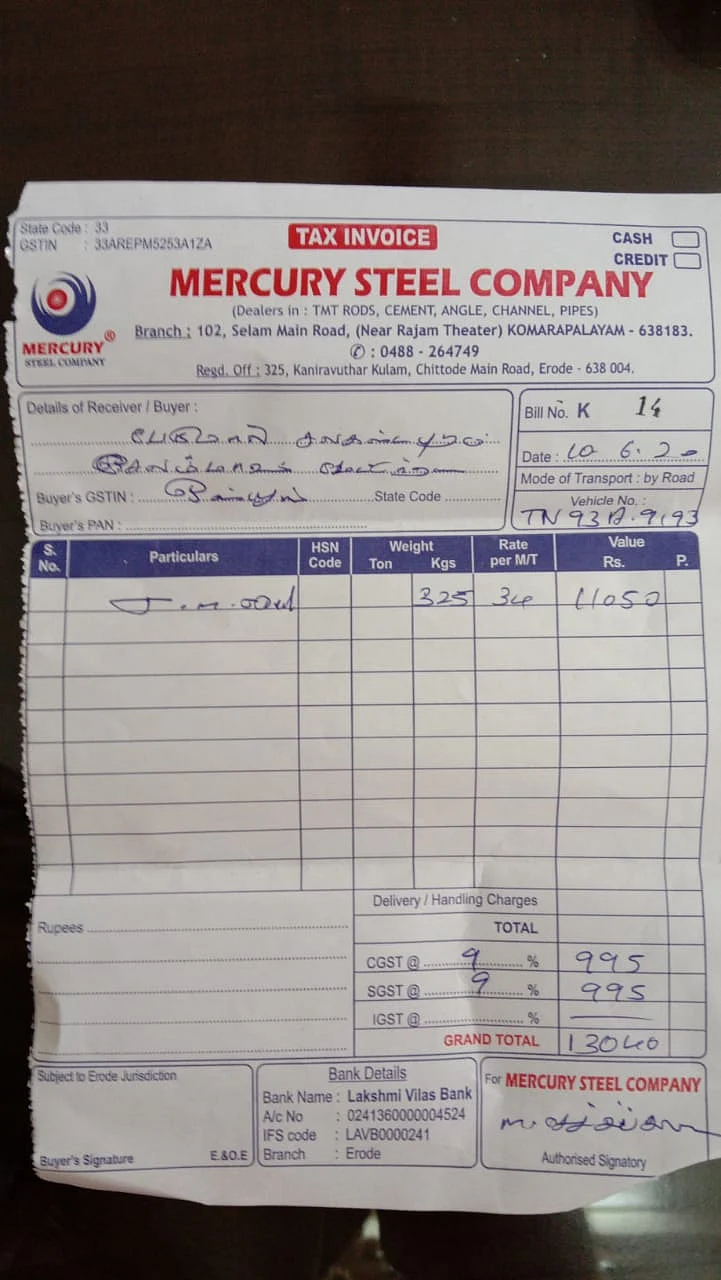 State Code : 33
GSTIN : 33AREPM5253A1ZA
TAX INVOICE
CASH
CREDIT
MERCURY STEEL COMPANY
(Dealers in : TMT RODS, CEMENT, ANGLE, CHANNEL, PIPES)
MERCURY ®
STEEL COMPANY
Branch : 102, Selam Main Road, (Near Rajam Theater) KOMARAPALAYAM - 638183.
✆ : 0488 - 264749
Regd. Off : 325, Kaniravuthar Kulam, Chittode Main Road, Erode - 638 004.
Details of Receiver / Buyer :
Buyer's GSTIN : State Code
Buyer's PAN :
Bill No. K 14
Date : 10 6. 20
Mode of Transport : by Road
Vehicle No. :
S. No. Particulars HSN Code Weight Ton Kgs Rate per M/T Value Rs. P.
325 34 11050
Delivery / Handling Charges
Rupees
TOTAL
CGST @ 9 % 995
SGST @ 9 % 995
IGST @ %
GRAND TOTAL 13040
Subject to Erode Jurisdiction
Buyer's Signature E.&O.E
Bank Details
Bank Name : Lakshmi Vilas Bank
A/c No : 0241360000004524
IFS code : LAVB0000241
Branch : Erode
For MERCURY STEEL COMPANY
Authorised Signatory